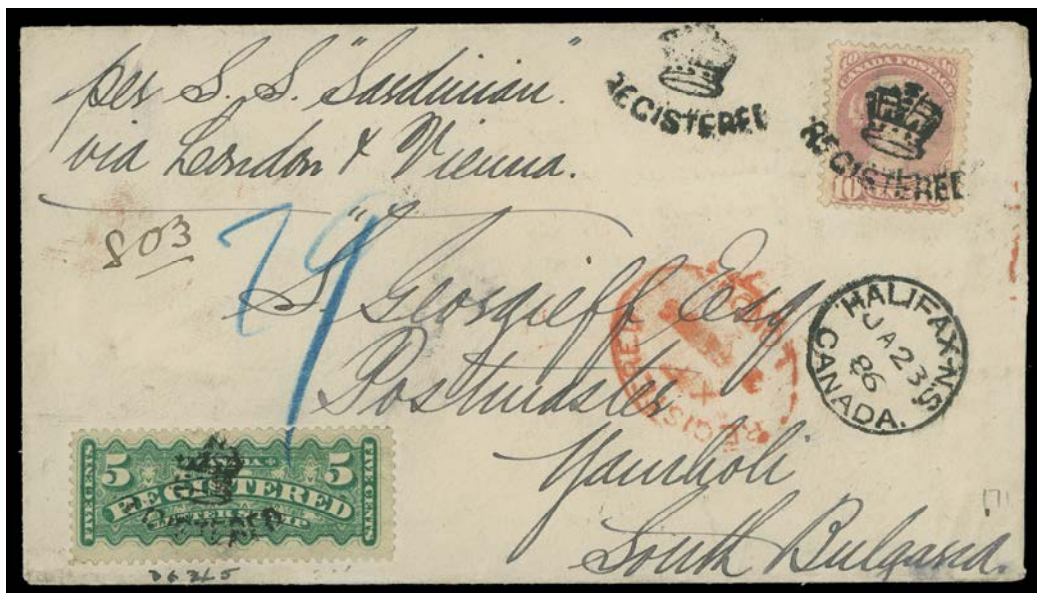 per S. S. "Sardinian".
via London & Vienna.
REGISTERED
CANADA POSTAGE
10
REGISTERED
803
79
S. Georgieff Esq
Postmaster
Yamboli
South Bulgaria.
REGISTERED
HALIFAX N.S.
JA 23
86
CANADA.
5 5
FIVE CENTS
REGISTERED
LETTER STAMP
FIVE CENTS
REGISTERED